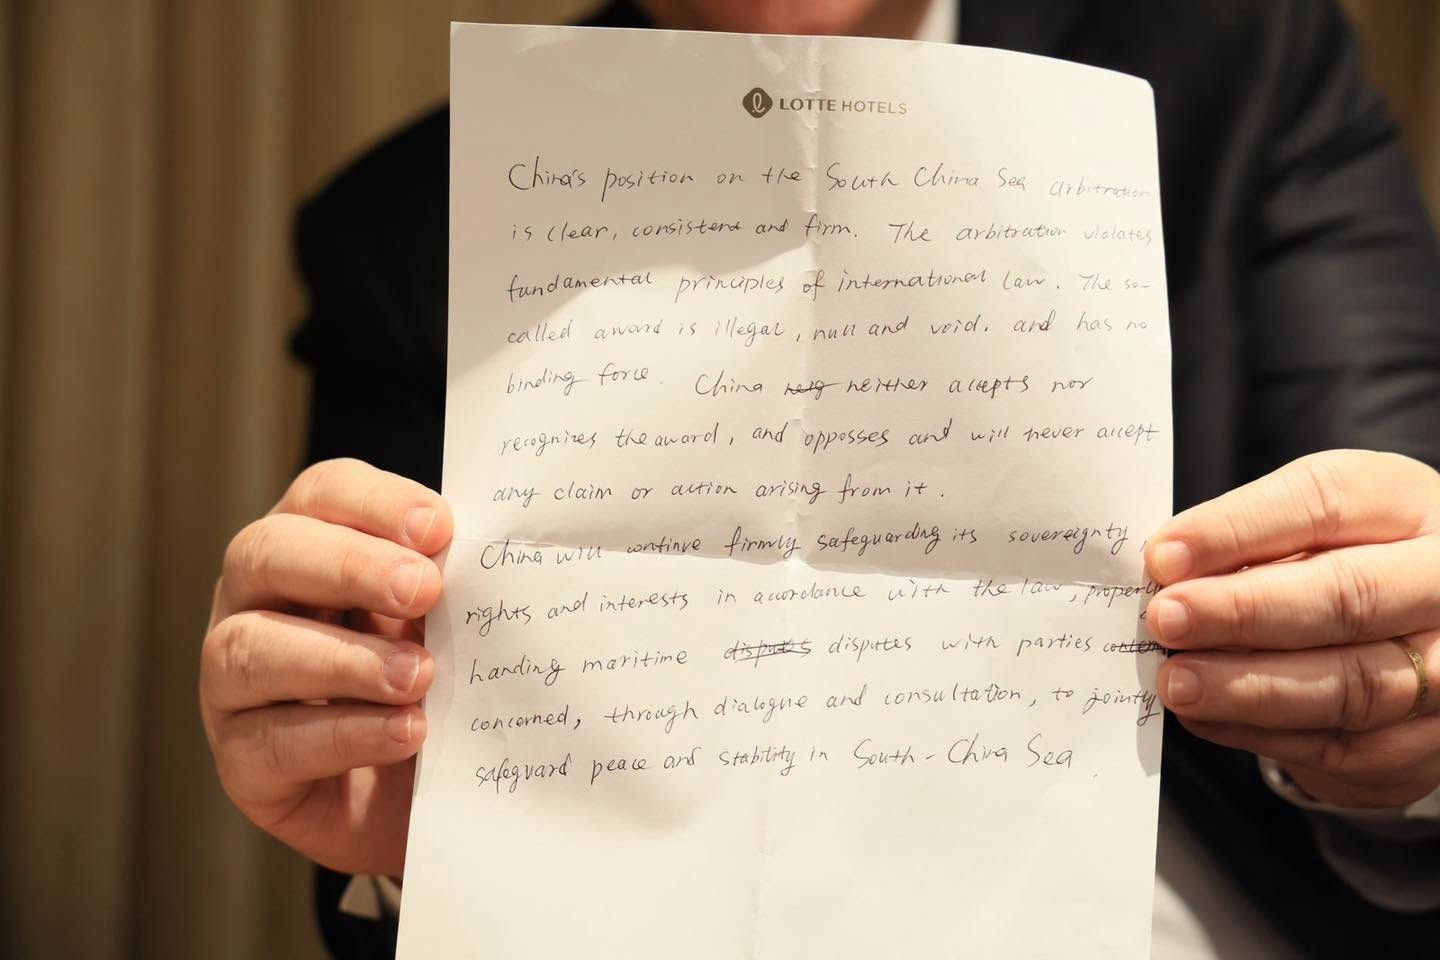 LOTTE HOTELS
China's position on the South China Sea arbitration
is clear, consistent and firm. The arbitration violates
fundamental principles of international law. The so-
called award is illegal, null and void. and has no
binding force. China neither accepts nor
recognizes the award, and opposses and will never accept
any claim or action arising from it.
China will continue firmly safeguarding its sovereignty,
rights and interests in accordance with the law, properly
handing maritime disputes disputes with parties
concerned, through dialogue and consultation, to jointly
safeguard peace and stability in South-China Sea.